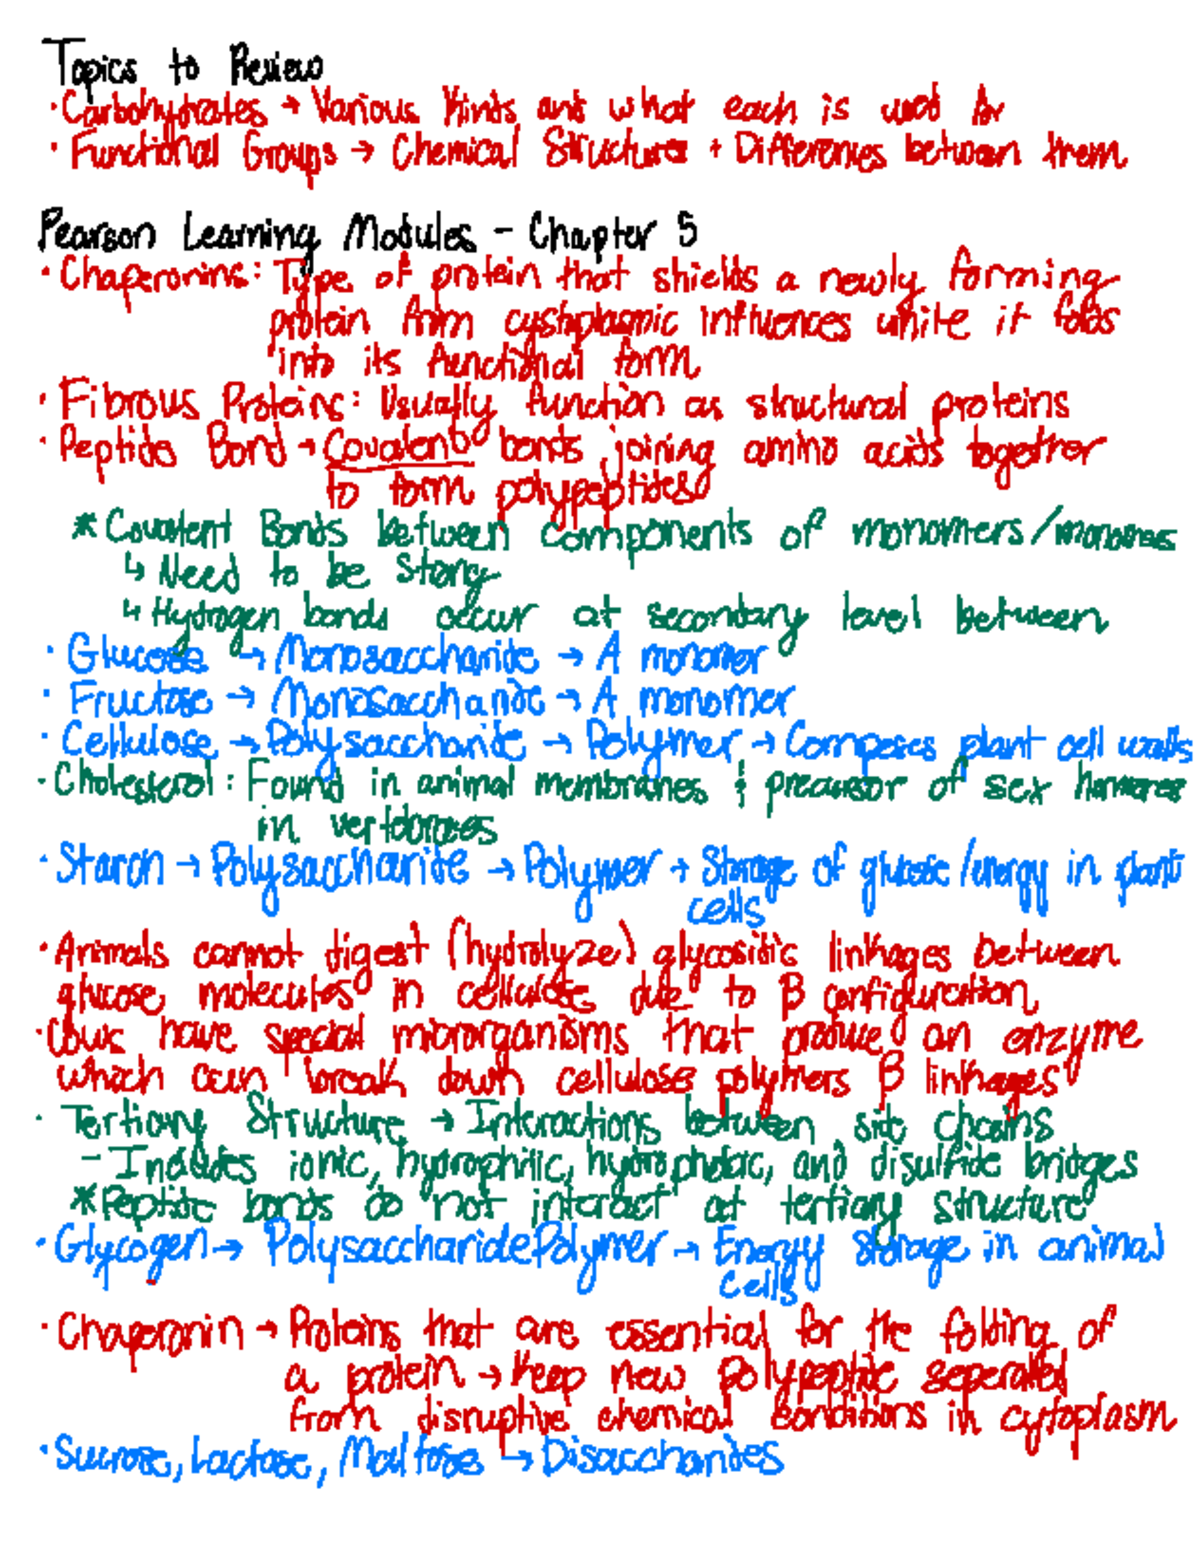 Topics to Review
· Carbohydrates → Various Kinds and what each is used for
· Functional Groups → Chemical Structures + Differences between them
Pearson Learning Modules - Chapter 5
· Chaperonins: Type of protein that shields a newly forming
protein from cystoplasmic influences while it folds
into its functional form
· Fibrous Proteins: Usually function as structural proteins
· Peptide Bond → Covalent bonds joining amino acids together
to form polypeptides
* Covalent Bonds between components of monomers/monomers
↳ Need to be Strong
↳ Hydrogen bonds occur at secondary level between
· Glucose → Monosaccharide → A monomer
· Fructose → Monosaccharide → A monomer
· Cellulose → Polysaccharide → Polymer → Composes plant cell walls
· Cholesterol: Found in animal membranes & precursor of sex hormones
in vertebrates
· Starch → Polysaccharide → Polymer → Storage of glucose/energy in plant
cells
· Animals cannot digest (hydrolyze) glycosidic linkages between
glucose molecules in cellulose due to β configuration
· Cows have special microrganisms that produce an enzyme
which can break down cellulose polymers β linkages
· Tertiary Structure → Interactions between side chains
- Includes ionic, hydrophilic, hydrophobic, and disulfide bridges
* Peptide bonds do not interact at tertiary structure
· Glycogen → Polysaccharide Polymer → Energy Storage in animal
cells
· Chaperonin → Proteins that are essential for the folding of
a protein → Keep new polypeptide seperated
from disruptive chemical conditions in cytoplasm
· Sucrose, Lactose, Maltose ↳ Disaccharides